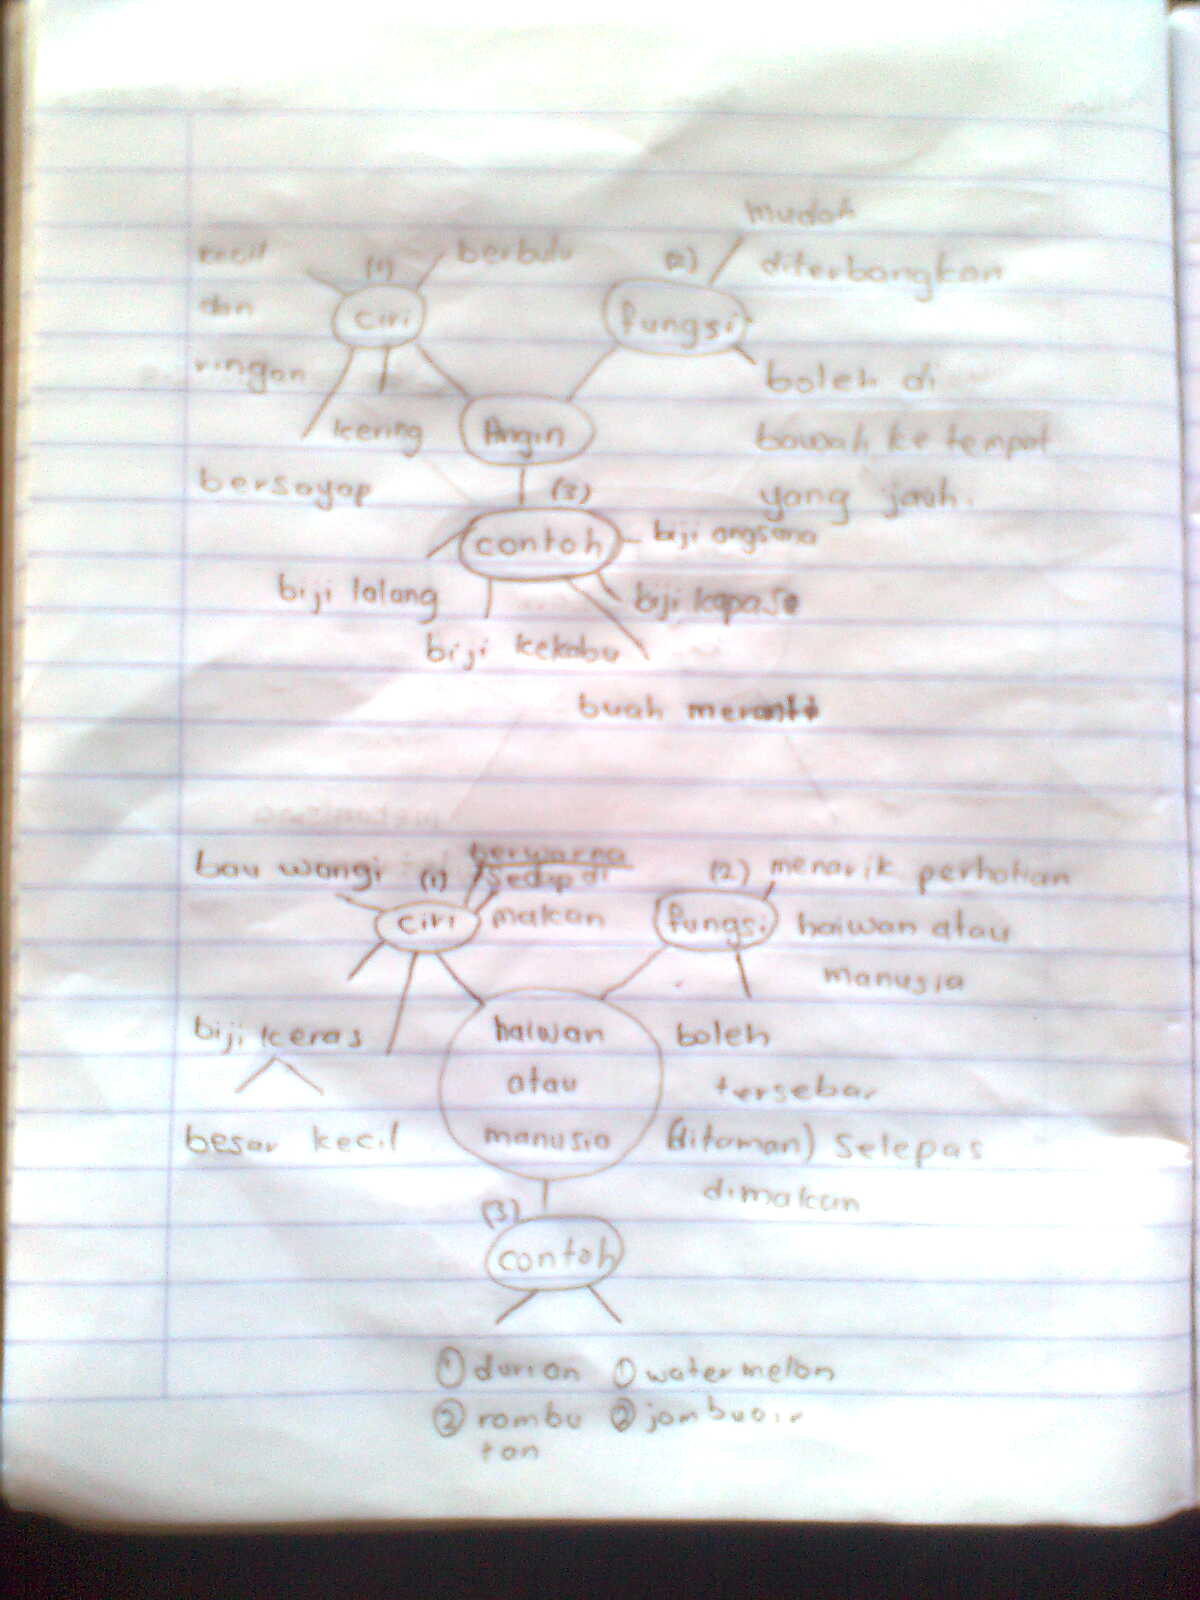 mudah
kecil (1) berbulu (2) diterbangkan
dan ciri fungsi
ringan boleh di
kering Angin bawah ke tempat
bersayap (3) yang jauh.
contoh biji angsana
biji lalang biji kapas
biji kekabu
buah meranti
bau wangi (1) berwarna (2) menarik perhatian
sedap di
ciri makan fungsi haiwan atau
manusia
biji keras haiwan boleh
atau tersebar
besar kecil manusia (ditaman) selepas
dimakan
(3)
contoh
① durian ① watermelon
② rambu ② jambu air
tan